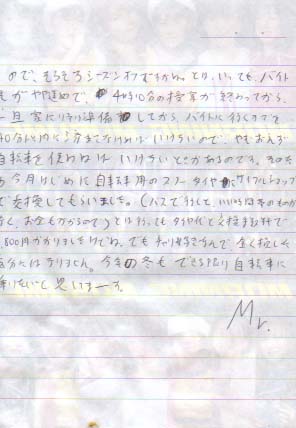 ので、そろそろシーズンオフですかね。とは、いっても、バイト
4時10分の授業が終わってから、
一旦家にもどり準備してからバイトに行くまでを
40分以内に いけないので、やむおえず
自転車を使わねば いけないときがあるのです。
今月はじめに自転車用のスノータイヤにサイクルショップ
で交換してもらいました。(バスで行くと、いい時間のものが
お金もかかるので)とは言ってもタイヤ代と交換手数料で
,800円かかりましたけどね、でもチャリ好きなんで全く損した
気分にはなりません。今年の冬もできる限り自転車に
乗りたいと思いまーす。
Mr.